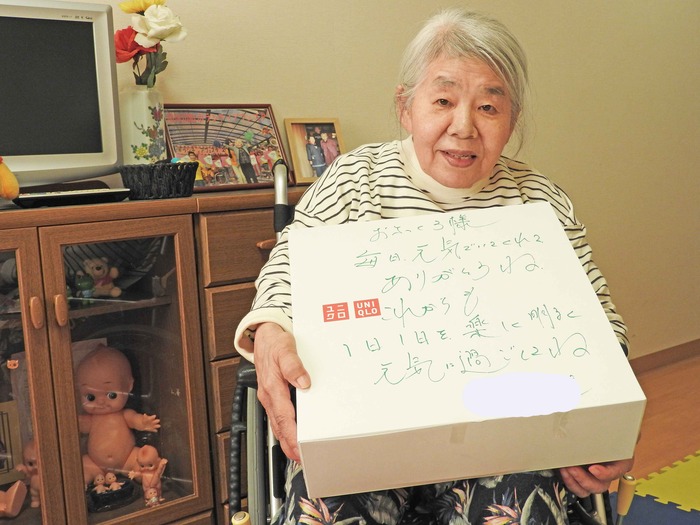 おふくろ様
毎日元気でいてくれて
ありがとうね
ユニ
クロ
UNI
QLO
これからも
1日1日を楽しく明るく
元気に過ごしてね